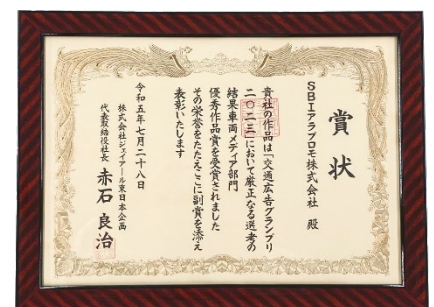 賞状
SBIアラプロモ株式会社 殿
貴社の作品は「交通広告グランプリ
二〇二三」において厳正なる選考の
結果車両メディア部門
優秀作品賞を受賞されました
その栄誉をたたえここに副賞を添え
表彰いたします
令和五年七月二十八日
株式会社ジェイアール東日本企画
代表取締役社長 赤石 良治